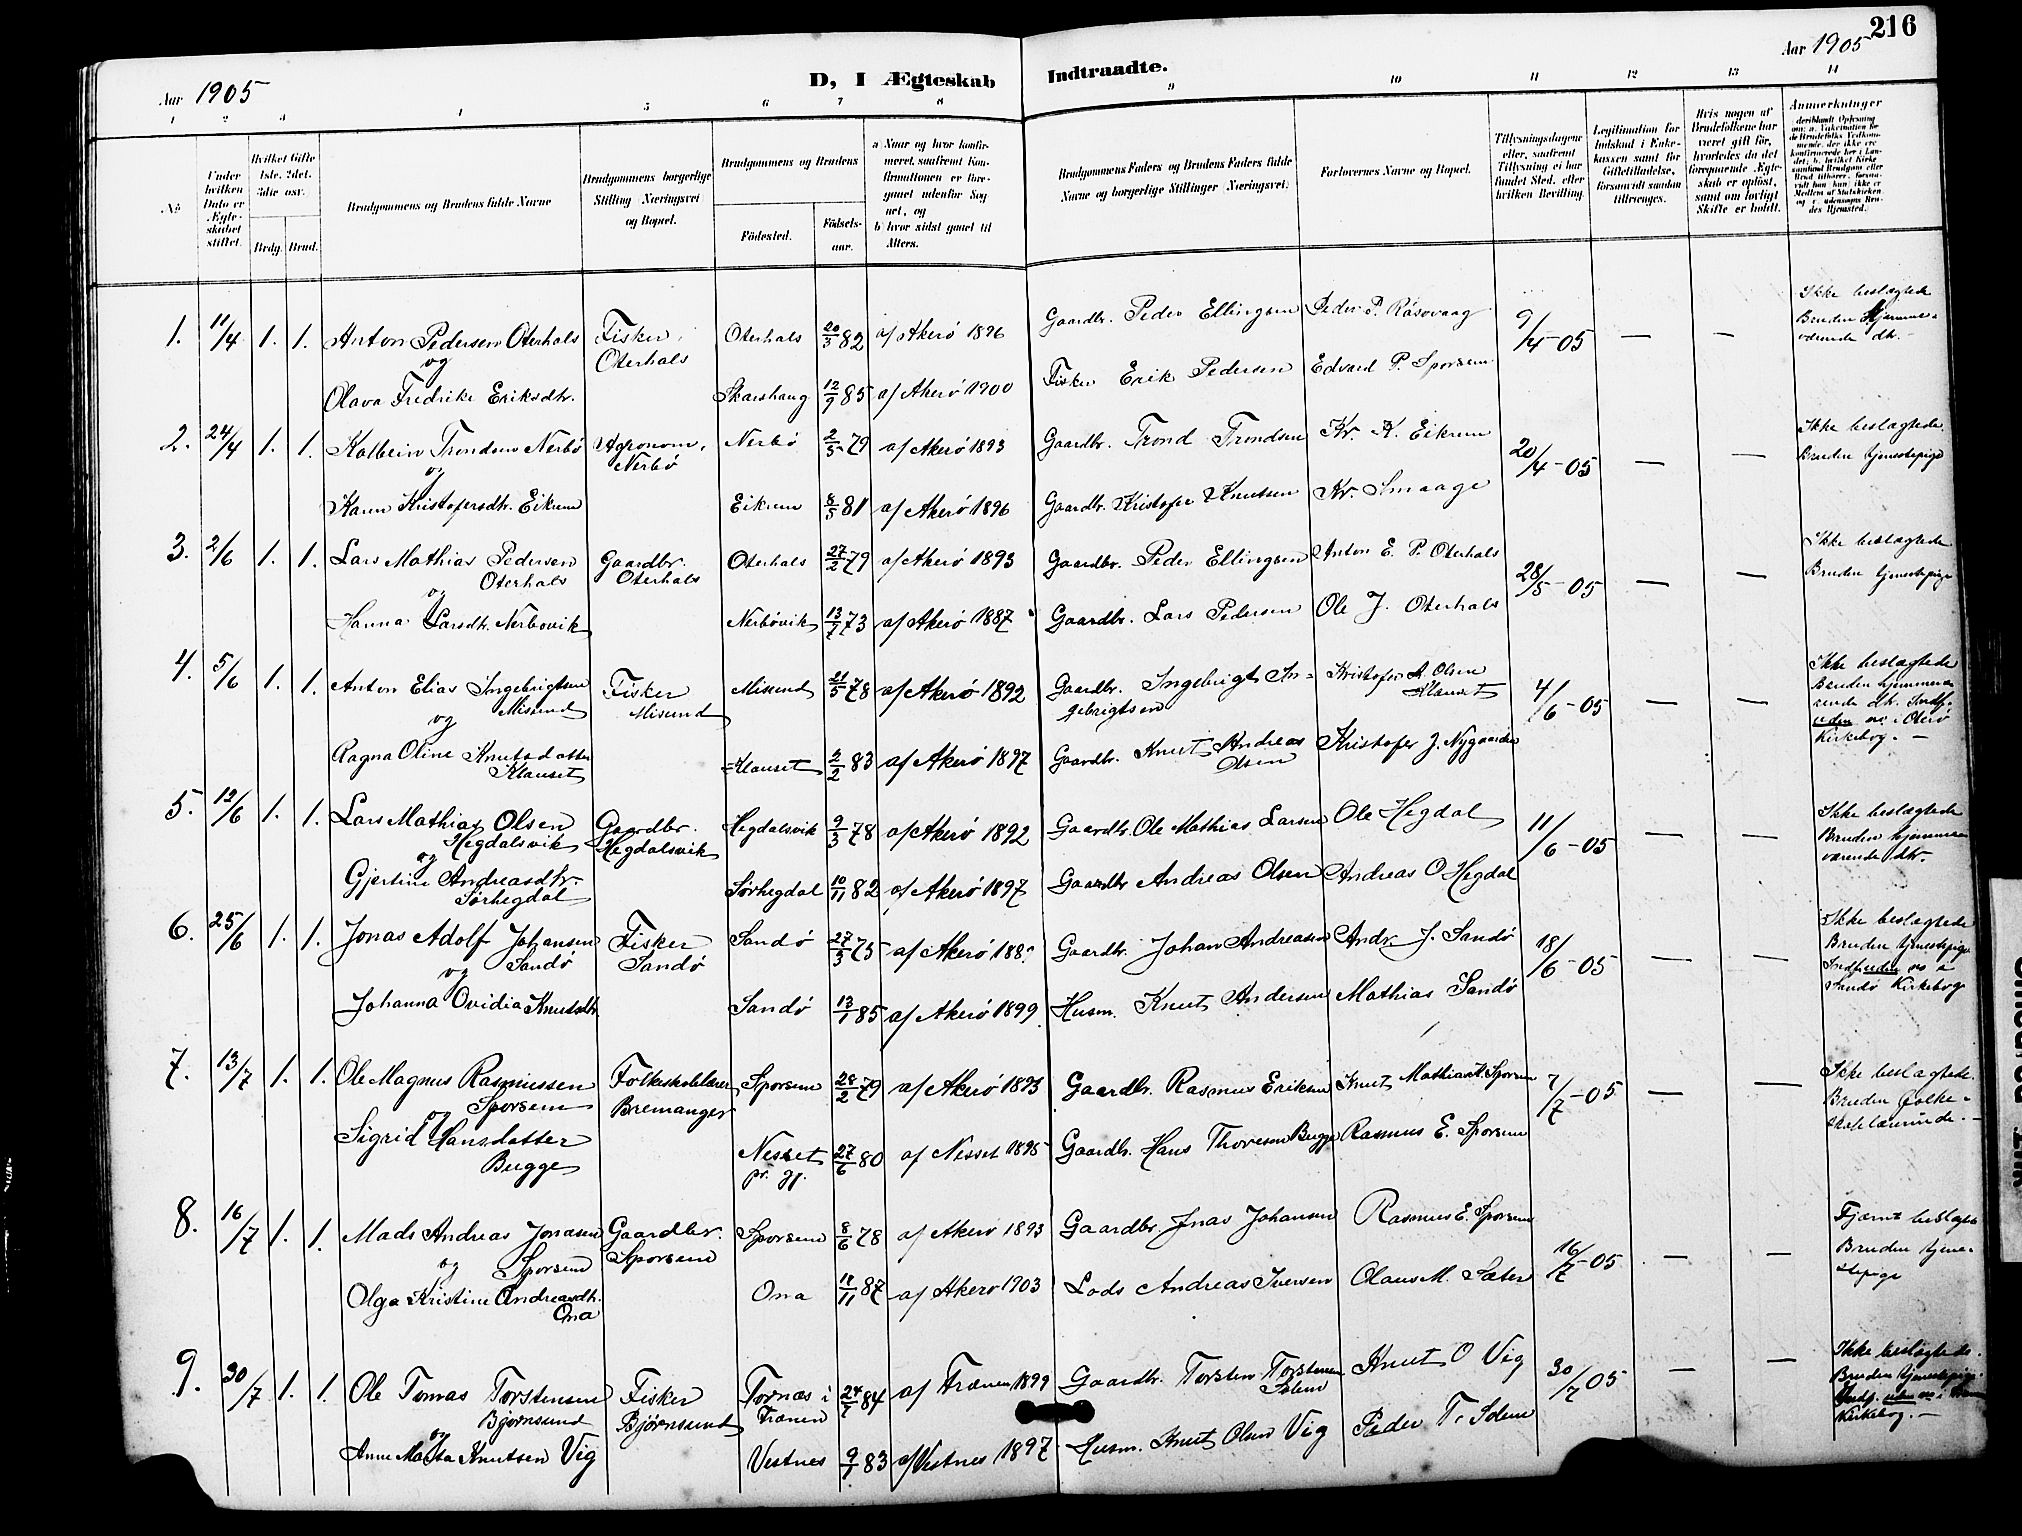 216
Aar 1905
Aar 1905
D, I Ægteskab Indtraadte.
1 2 3 4 5 6 7 8 9 10 11 12 13 14
No.
Under hvilken Dato er Ægteskabet stiftet.
Hvilket Gifte 1ste, 2det, 3die osv.
Brdg.
Brud.
Brudgommens og Brudens fulde Navne
Brudgommens borgerlige Stilling (Næringsvei) og Bopæl.
Brudgommens og Brudens
Födested.
Födselsaar.
a) Naar og hvor konfirmeret, saafremt Konfirmationen er foregaaet udenfor Sognet, og
b) hvor sidst gaaet til Alters.
Brudgommens Faders og Brudens Faders fulde Navne og borgerlige Stillinger (Næringsvei).
Forlovernes Navne og Bopæl.
Tillysningsdagene eller, saafremt Tillysning ei har fundet Sted, efter hvilken Bevilling.
Legitimation for Indskud i Enkekassen samt for Giftetilladelse, forsaavidt saadan tiltrænges.
Hvis nogen af Brudefolkene har været gift för, hvorledes da det foregaaende Ægteskab er oplöst, samt om lovligt Skifte er holdt.
Anmerkninger
1. 11/4 1. 1. Anton Pedersen Oterhals Fisker, Oterhals Oterhals 20/3 82 af Akerö 1896 Gaardbr. Peder Ellingsen Peder P. Räsovaag 9/4-05 — — Ikke beslægtede Bruden hjemmeværende dtr. —
og
Olava Fredrike Eriksdtr. Skarshaug 12/9 85 af Akerö 1900 Fisker Erik Pedersen Edvard P. Sporsem
2. 24/4 1. 1. Kolbein Trondsen Nerbö Agronom, Nerbö Nerbö 2/5 79 af Akerö 1893 Gaardbr. Trond Trondsen Kr. K. Eikrem 20/4-05 — — Ikke beslægtede. Bruden tjenestepige
og
Karen Kristofersdtr. Eikrem Eikrem 8/5 81 af Akerö 1896 Gaardbr. Kristofer Knutsen Kr. Smaage
3. 2/6 1. 1. Lars Mathias Pedersen Oterhals Gaardbr. Oterhals Oterhals 27/2 79 af Akerö 1893 Gaardbr. Peder Ellingsen Anton E. P. Oterhals 28/5-05 — — Ikke beslægtede Bruden tjenestepige
og
Hanna Larsdtr. Nerbövik Nerbövik 13/7 73 af Akerö 1887 Gaardbr. Lars Pedersen Ole J. Oterhals
4. 5/6 1. 1. Anton Elias Ingebrigtsen Misund Fisker Misund Misund 21/5 78 af Akerö 1892 Gaardbr. Ingebrigt Ingebrigtsen Kristofer A. Olsen Klauset 4/6-05 — — Ikke beslægtede Bruden hjemmeværende dtr.
og
Ragna Oline Knutsdatter Klauset Klauset 2/2 83 af Akerö 1897 Gaardbr. Knut Andreas Olsen Kristofer J. Nygaarden Kirkebog. —
5. 12/6 1. 1. Lars Mathias Olsen Hegdalsvik Gaardbr. Hegdalsvik Hegdalsvik 9/3 78 af Akerö 1892 Gaardbr. Ole Mathias Larsen Ole Hegdal 11/6-05 — — Ikke beslægtede Bruden hjemmeværende dtr.
og
Gjertine Andreasdtr. Sörhegdal Sörhegdal 10/11 82 af Akerö 1897 Gaardbr Andreas Olsen Andreas O Hegdal
6. 25/6 1. 1. Jonas Adolf Johansen Sandö Fisker Sandö Sandö 27/3 75 af Akerö Gaardbr. Johan Andreasen Andr. J. Sandö 18/6-05 — — Ikke beslægtede Bruden tjenestepige Sandö Kirkebog
og
Johanna Ovidia Knutsdtr. Sandö 13/1 85 af Akerö 1899. Husm. Knut Andersen Mathias Sandö
7. 13/7 1. 1. Ole Magnus Rasmussen Sporsem Folkeskolelærer Bremanger Sporsem 28/2 79 af Akerö 1893 Gaardbr. Rasmus Eriksen Knut Mathias K. Sporsem 7/7-05 — — Ikke beslægtede. Bruden folkeskolelærerinde. —
og
Sigrid Hansdatter Bugge Nesset pr. gj. 27/6 80 af Nesset 1895 Gaardbr. Hans Thoresen Bugge Rasmus E. Sporsem
8. 16/7 1. 1. Mads Andreas Jonasen Sporsem Gaardbr. Sporsem Sporsem 8/6 78 af Akerö 1893 Gaardbr. Jonas Johansen Rasmus E. Sporsem 16/7-05 — — Fjærnt beslægt. Bruden tjenestepige
og
Olga Kristine Andreasdtr. Ona Ona 11/11 87 af Akerö 1903 Lods Andreas Iversen Olaus M. Sæter
9. 30/7 1. 1. Ole Tomas Torstensen Björnsund Fisker Björnsund Tornæs i Frænen 24/7 84 af Frænen 1899 Gaardbr. Torsten Torstensen Solem Knut O Vig 30/7 05 — — Ikke beslægtede. Bruden tjenestepige. Kirkebog. —
og
Anne Marta Knutsen Vig Vestnes 9/1 83 af Vestnes 1897 Husm. Knut Olsen Vig Peder T. Solem